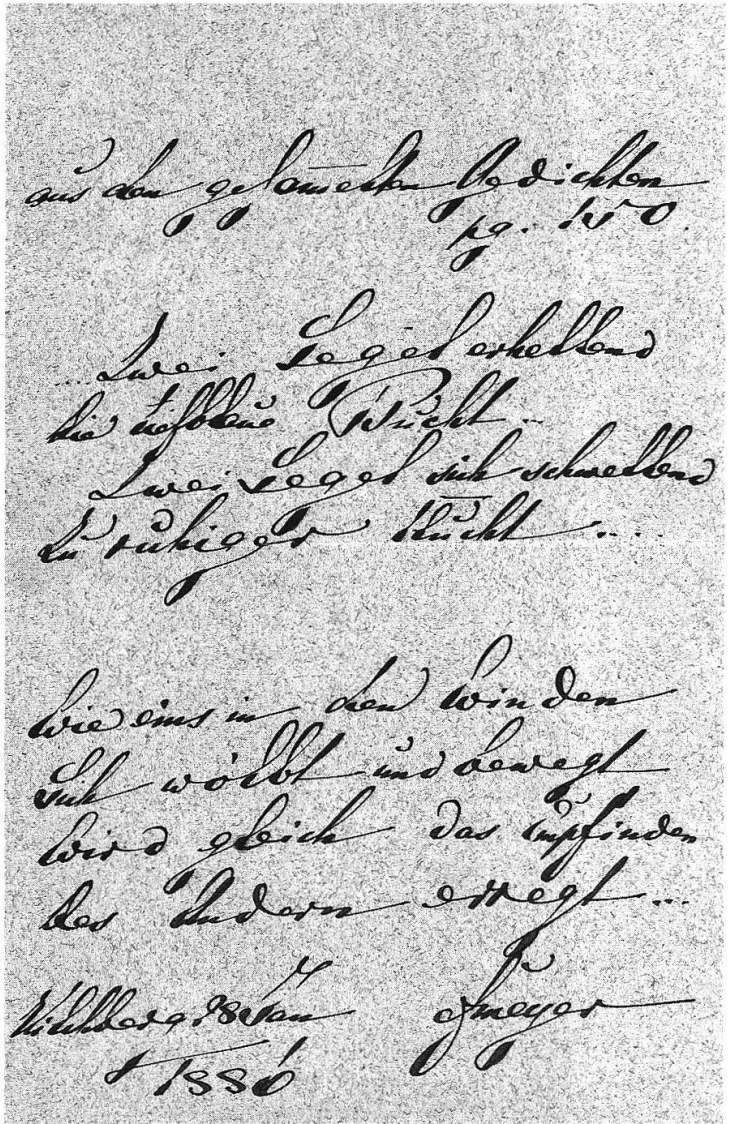 aus den gesam̅elten Gedichten
pg. 150.
... Zwei Segel erhellend
Die tiefblaue Bucht.
Zwei Segel sich schwellend
Zu ruhiger Flucht ....
Wie eins in den Winden
Sich wölbt und bewegt
Wird gleich das Empfinden
Des Andern erregt ...
Kilchberg 28 Jan
cfmeyer
1886